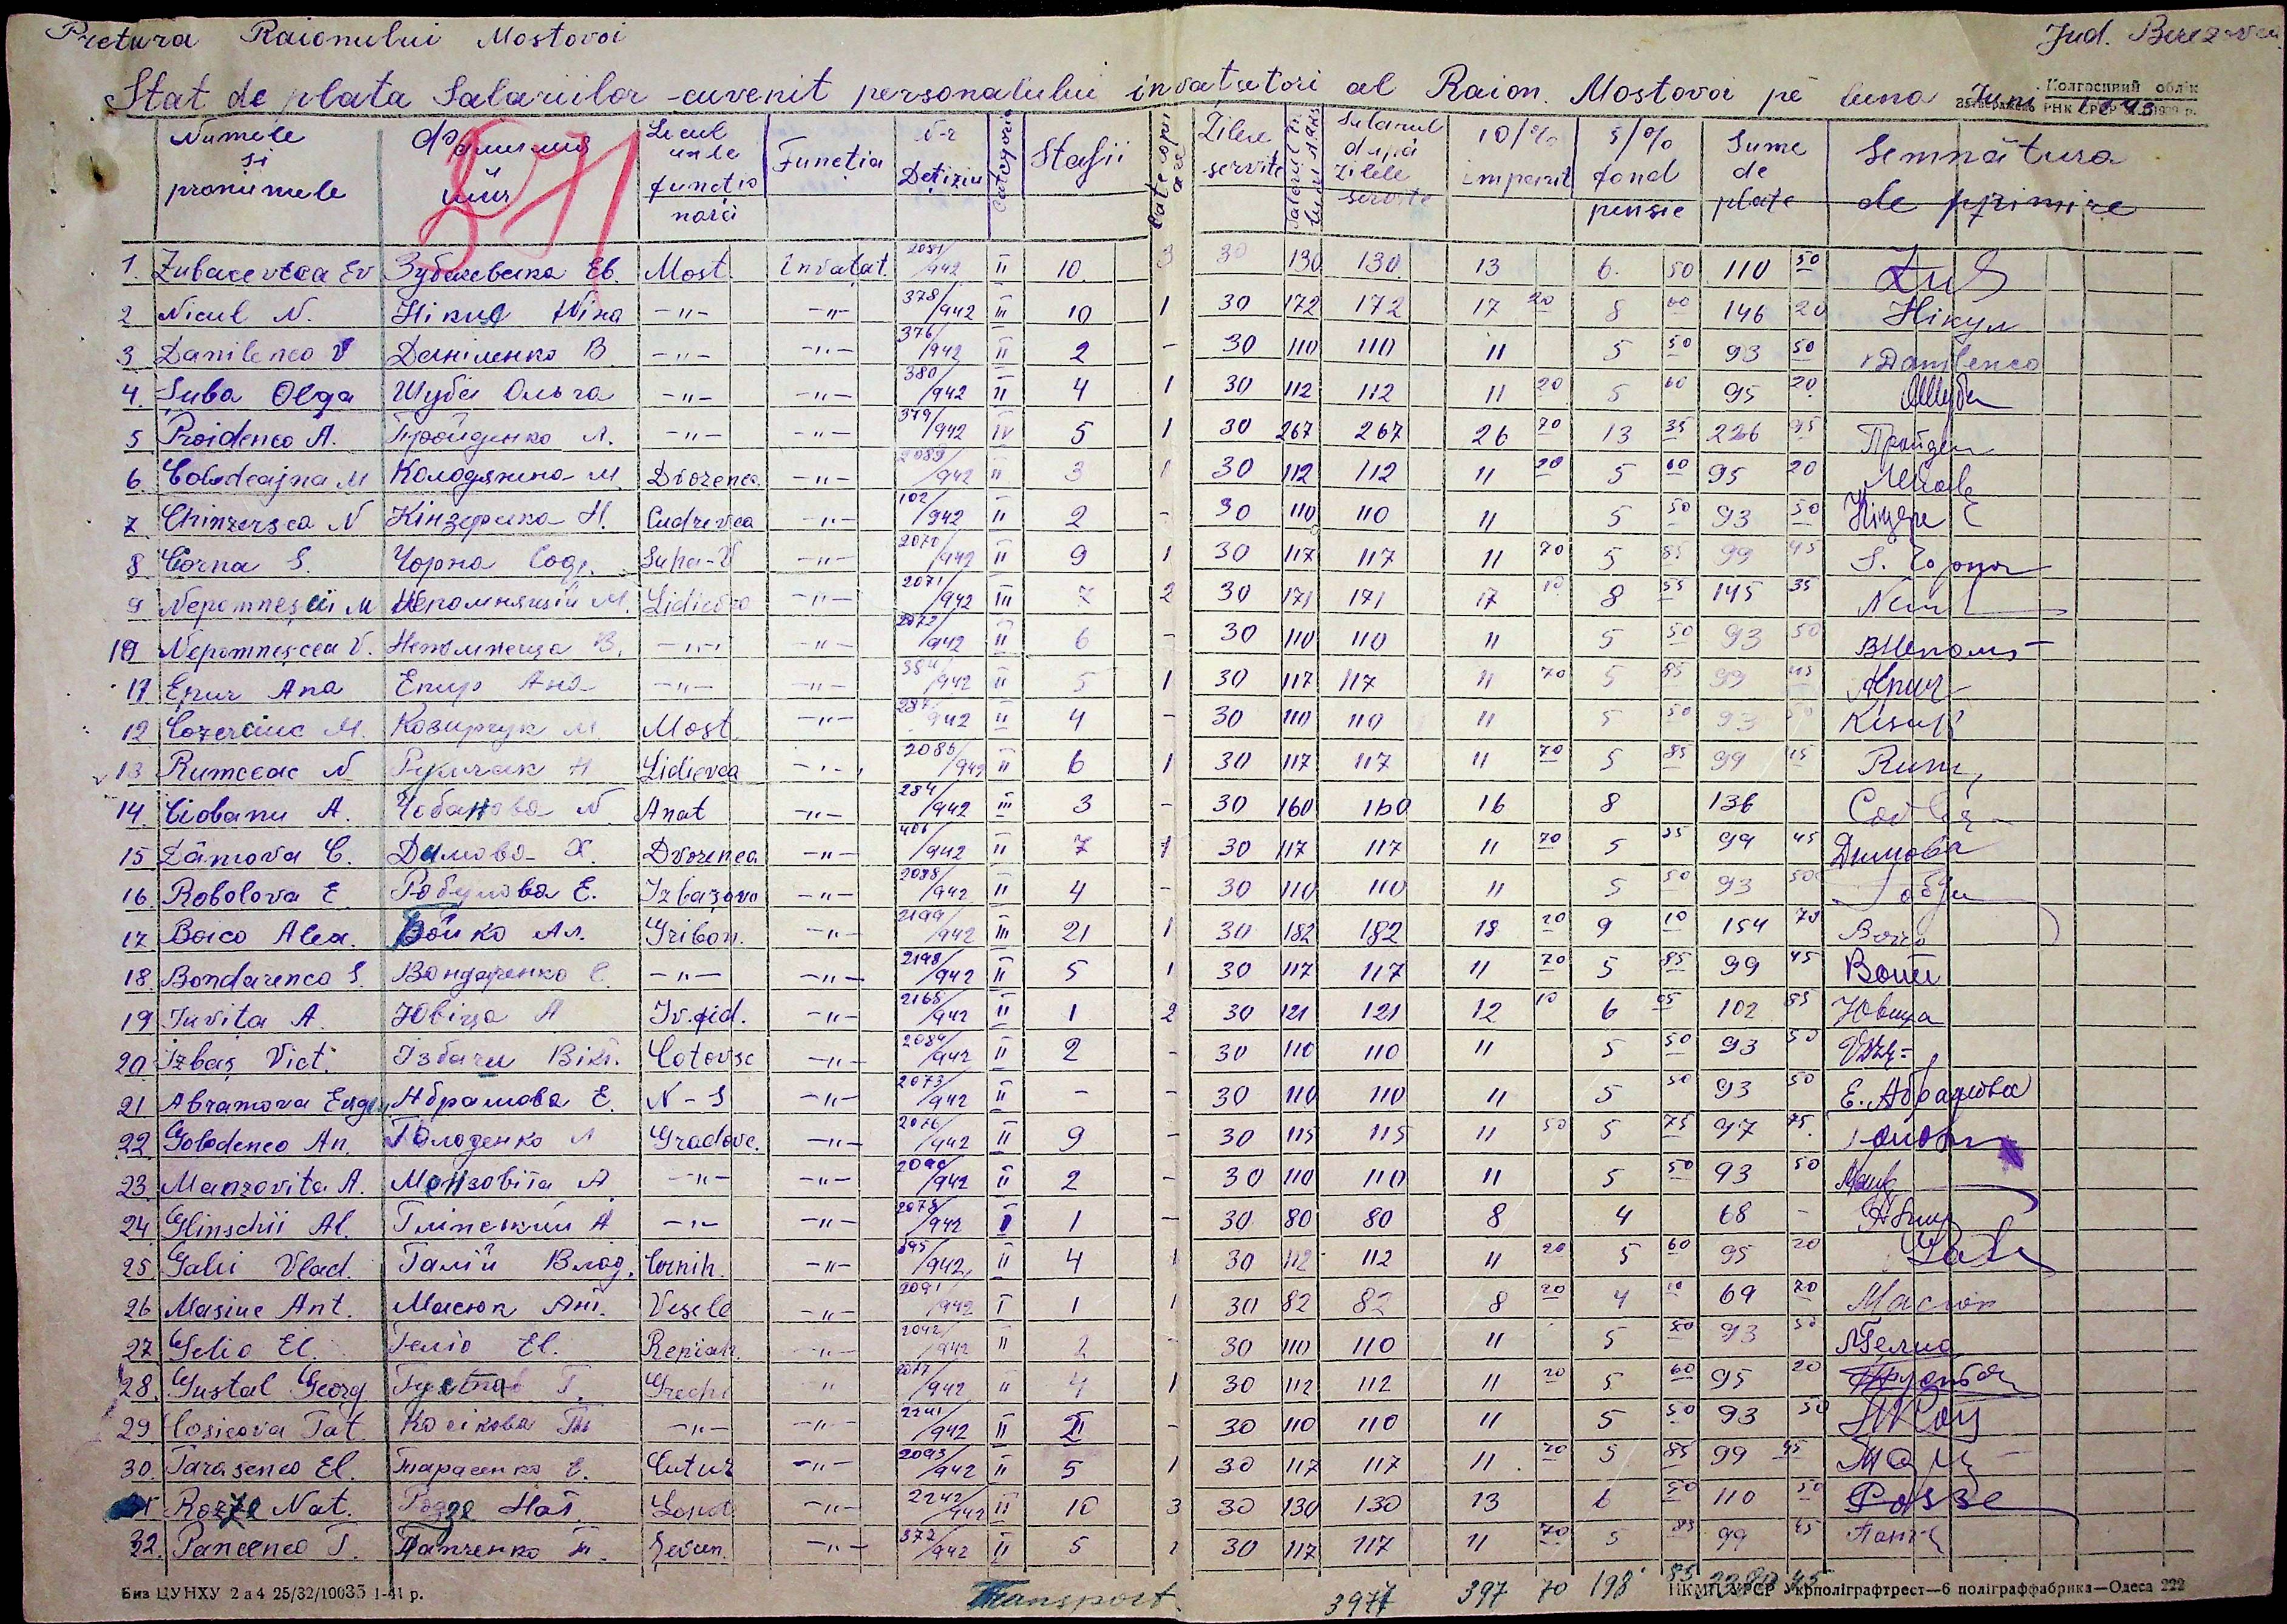 Pretura Raionului Mostovoi
Jud. Berezovca
Stat de plata Salariilor cuvenit personalului invatatori al Raion. Mostovoi pe luna Juni 1943
Колгоспний облік
Numele si pronumele Фамилия Locul unde functio nară Funcția Deţiziu Categoria Stajii Zilele servite Salarul după zilele servite 10/% impozit 5/% fond pensie Sume de plate Semnătura de pprimire
571
1. Zubacevcca Ev Зубачевска Ев. Most. învatat. 2081/942 II 10 3 30 130 130 13 6 50 110 50
2 Nicul N. Нікул Ніна -"- -"- 378/942 III 10 1 30 172 172 17 20 8 60 146 20 Нікул
3 Danilenco V Даніленко В -"- -"- 376/942 II 2 - 30 110 110 11 5 50 93 50 Danilenco
4. Șuba Olga Шуба Ольга -"- -"- 380/942 II 4 1 30 112 112 11 20 5 60 95 20
5 Proidenco A. Пройденко А. -"- -"- 379/942 IV 5 1 30 267 267 26 70 13 35 226 95 Пройден
6. Colodeajna M Колодяжна М. Dvorenca. -"- 2089/942 II 3 1 30 112 112 11 20 5 60 95 20
7 Chinzersca N Кінзерска Н. Cudrevca -"- 102/942 II 2 - 30 110 110 11 5 50 93 50
8 Ciorna S. Чорна Соф. Suha-V -"- 2070/942 II 9 1 30 117 117 11 70 5 85 99 45 S. Чорна
9 Nepomneșcii M Непомнящий М. Lidievca -"- 2071/942 III 7 2 30 171 171 17 10 8 55 145 35
10 Nepomneșcea V. Непомнеща В. -"- -"- 2072/942 II 6 - 30 110 110 11 5 50 93 50 ВНепом
11 Epur Ana Епур Ана -"- -"- 384/942 II 5 1 30 117 117 11 70 5 85 99 45
12 Cozerciuc M. Козирчук М Most. -"- 287/942 II 4 - 30 110 110 11 5 50 93 50
13 Rumceac N Румчак Н Lidievca -"- 2086/942 II 6 1 30 117 117 11 70 5 85 99 45 Rum
14. Ciobanu A. Чобанова N Anat -"- 284/942 III 3 - 30 160 160 16 8 136
15 Dâmova C. Димова Х. Dvorenca -"- 406/942 II 7 1 30 117 117 11 70 5 85 99 45 Димова
16. Robolova E. Робулова Е. Izbașovo -"- 2088/942 II 4 - 30 110 110 11 5 50 93 50
17 Boico Alex. Бойко Ал. Gribon. -"- 2199/942 III 21 1 30 182 182 18 20 9 10 154 70
18. Bondarenco S. Бондаренко С. -"- -"- 2198/942 II 5 1 30 117 117 11 70 5 85 99 45
19 Iuvița A. Ювіца А Iv.gid. -"- 2165/942 II 1 2 30 121 121 12 10 6 05 102 85 Ювица
20. Izbaș Vict. Ізбаш Вікт. Cotovsc -"- 2084/942 II 2 - 30 110 110 11 5 50 93 50
21 Abramova Eugen. Абрамова Е. N-S -"- 2073/942 II - - 30 110 110 11 5 50 93 50 Е. Абрамова
22. Golodenco An. Голоденко А Gradovc. -"- 2076/942 II 9 - 30 115 115 11 50 5 75 97 75.
23. Manzovita A. Монзовіта А -"- -"- 2090/942 II 2 - 30 110 110 11 5 50 93 50
24. Glinschii Al. Глінський А -"- -"- 2078/942 I 1 - 30 80 80 8 4 68 -
25. Galii Vlad. Галій Влад. Cornih. -"- 395/942 II 4 1 30 112 112 11 20 5 60 95 20
26 Masiuc Ant. Масюк Ант. Vesele -"- 2091/942 I 1 1 30 82 82 8 20 4 10 69 70 Масюк
27. Gelio El. Геліо El. Repiah. -"- 2042/942 II 2 - 30 110 110 11 5 50 93 50
28. Gustal Georg Густав Г. Grechi " 2077/942 II 4 1 30 112 112 11 20 5 60 95 20
29. Cosicova Tat. Косікова Тат -"- -"- 2241/942 II 2 - 30 110 110 11 5 50 93 50
30. Tarasenco El. Тарасенко Е. Cutuz -"- 2093/942 II 5 1 30 117 117 11 70 5 85 99 45
31 Rozze Nat. Роззе Нат. Lond -"- 2242/942 II 10 3 30 130 130 13 6 50 110 50 Роззе
32. Pancenco T. Панченко Т. Șevcen. -"- 377/942 II 5 1 30 117 117 11 70 5 85 99 45
Transport 3977 397 70 198 85 3380 45
Биз ЦУНХУ 2 а 4 25/32/10033 1-41 р.
НКМП УРСР Укрполіграфтрест—6 поліграффабрика—Одеса 222